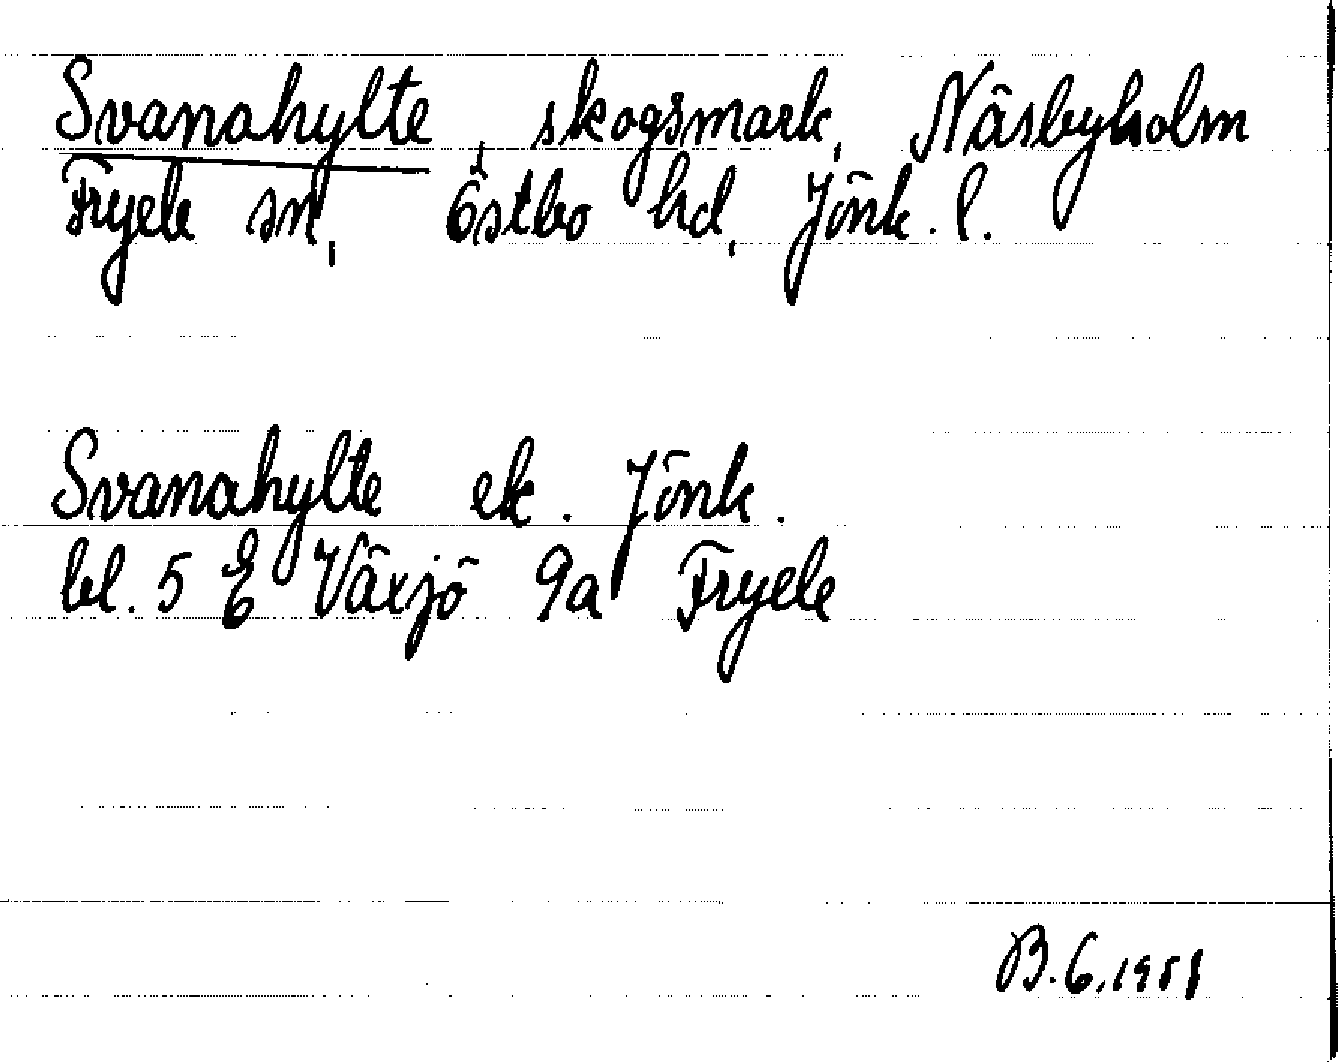 Svanahylte, skogsmark, Näsbyholm
Fryele sn, Östbo hd, Jönk. l.
Svanahylte ek. Jönk.
bl. 5 E Växjö 9a Fryele
B.G. 1951